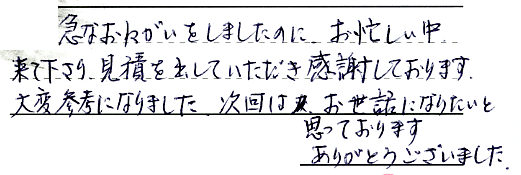 急なおねがいをしましたのに お忙しい中
来て下さり 見積を出していただき 感謝しております.
大変参考になりました. 次回は お世話になりたいと
思っております
ありがとうございました.